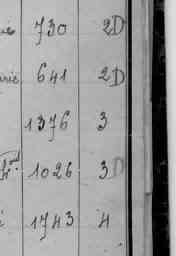 730 2D
641 2D
1376 3
1026 3D
1743 4